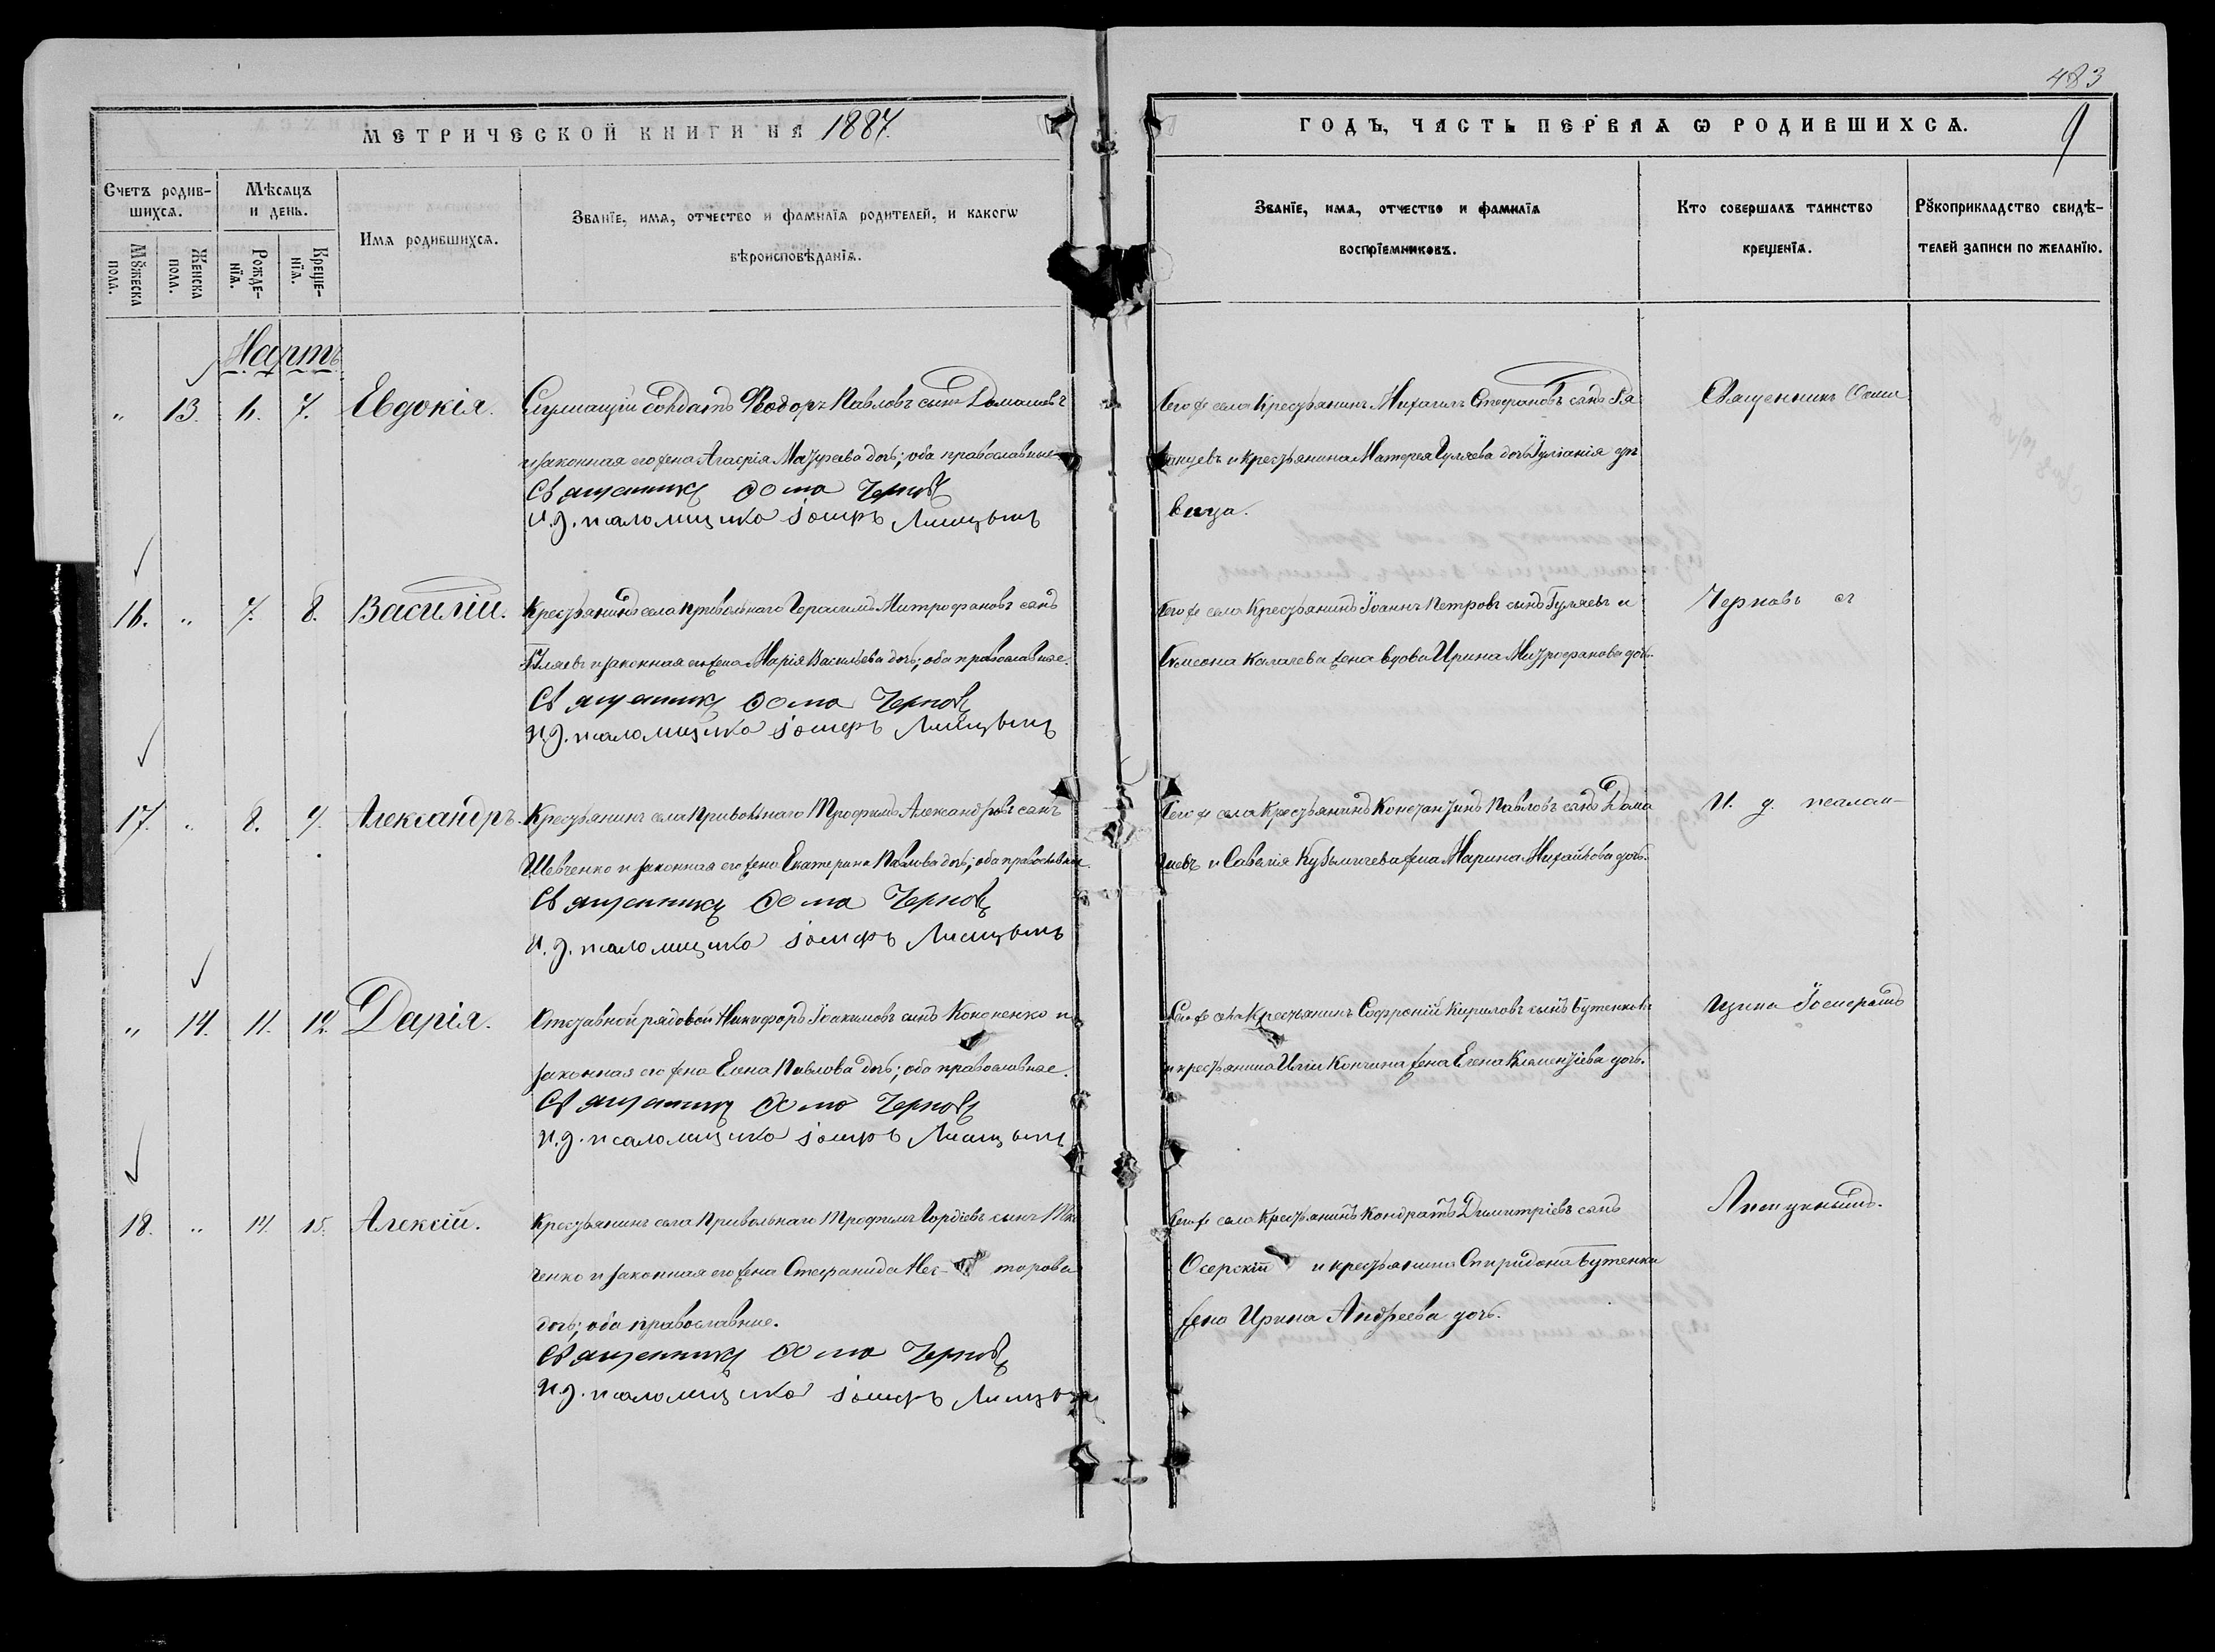 483
МЕТРИЧЕСКОЙ КНИГИ НА 1887.
ГОДЪ, ЧАСТЬ ПЕРВАЯ Ѡ РОДИВШИХСЯ.
9
Счетъ родив-
шихся.
Мѣсяцъ
и день.
Имя родившихся.
Званїе, имя, отчество и фамилїя родителей, и какогѡ
вѣроисповѣданїя.
Званїе, имя, отчество и фамилїя
воспрїемниковъ.
Кто совершалъ таинство
крещенїя.
Рꙋкоприкладство свидѣ-
телей записи по желанїю.
Мꙋжеска
пола.
Женска
пола.
Рожде-
нїя.
Креще-
нїя.
Мартъ
" 13. 6. 7. Евдокія.
Служащій солдатъ Ѳеодоръ Павловъ сынъ Домашевъ
и законная его жена дочь; оба православные
Священникъ Ѳома Черновъ
И. д. псаломщика Іосифъ Лисицынъ
Того же села Крестьянинъ Михаилъ Стефановъ сынъ
и крестьянина Гуляева дочь Іуліанія дѣ
вица.
Священникъ Ѳома
16. " 7. 8. Василій.
Крестьянинъ села Привольнаго Герасимъ Митрофановъ сынъ
Гуляевъ и законная его жена Марія Васильева дочь; оба православные.
Священникъ Ѳома Черновъ
И. д. псаломщика Іосифъ Лисицынъ
Того же села Крестьянинъ Іоаннъ Петровъ сынъ Гуляевъ и
Симеона Калачева жена вдова Ирина Митрофанова дочь.
Черновъ съ
17. " 8. 9. Александръ.
Крестьянинъ села Привольнаго Трофимъ Александровъ сынъ
Шевченко и законная его жена Екатерина Павлова дочь; оба православные
Священникъ Ѳома Черновъ
И. д. псаломщика Іосифъ Лисицынъ
Того же села Крестьянинъ Константинъ Павловъ сынъ Дома
шевъ и Савелія Кузьмичева жена Марина Михайлова дочь.
И. д. псалом-
" 14. 11. 12. Дарія.
Отставной рядовой Никифоръ Іоакимовъ сынъ Кононенко и
законная его жена Елена Павлова дочь; оба православные.
Священникъ Ѳома Черновъ
И. д. псаломщика Іосифъ Лисицынъ
Того же села Крестьянинъ Софроній Кириловъ сынъ Бутенковъ
и крестьянина Иліи Кончина жена Елена Клементіева дочь.
щика Іосифомъ
18. " 14. 15. Алексій.
Крестьянинъ села Привольнаго Трофимъ Гордіевъ сынъ Тка
ченко и законная его жена Стефанида Нес- торова
дочь; оба православные.
Священникъ Ѳома Черновъ
И. д. псаломщика Іосифъ Лисицынъ
Того же села Крестьянинъ Кондратъ Димитріевъ сынъ
Озерскій и крестьянина Спиридона Бутенки
жена Ирина Андреева дочь.
Лисицынымъ.